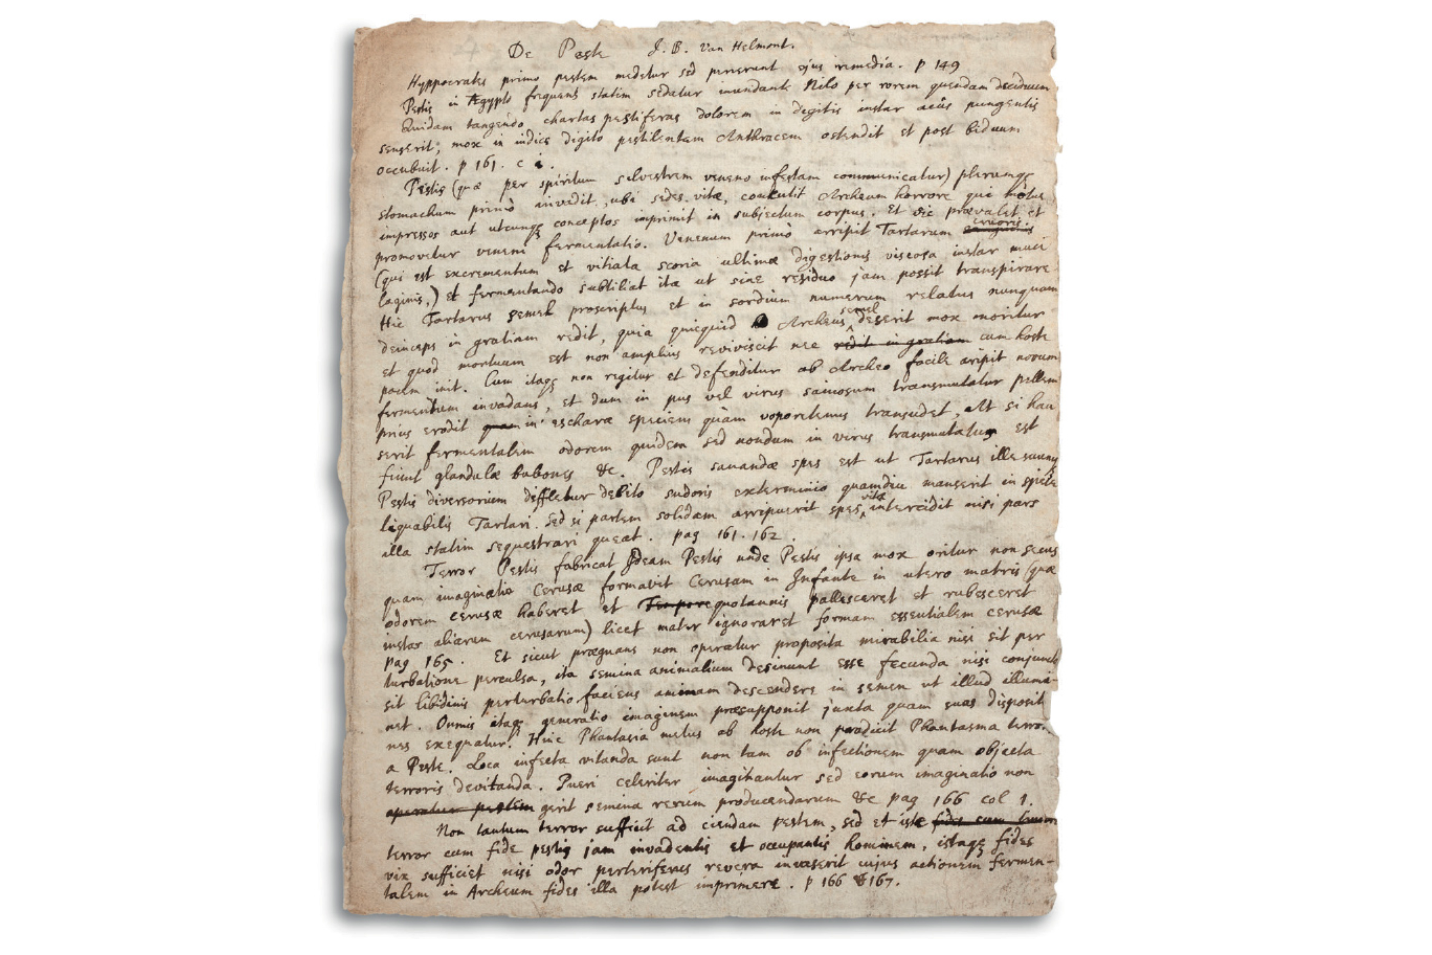 De Peste J. B. Van Helmont.
Hyppocrates primo pestem medetur sed perierunt ejus remedia. p 149
Pestis in Ægypto frequens statim sedatur inundante Nilo per rorem quendam deciduum
Quidam tangendo chartas pestiferas dolorem in digitis instar acûs pungentis
senserit; mox in indice digito pestilentem Anthracem ostendit et post biduum
occubuit. p 161. c 1.
Pestis (quæ per spiritum silvestrem veneno infestam communicatur) plerumqꝫ
stomachum primò invadit, ubi sedes vitæ, concutit Archeum horrore qui motus
impressos aut utcunqꝫ conceptos imprimit in subjectum corpus. Et sic prævalet et
promovetur veneni fermentatio. Venenum primò arripit Tartarum sanguinis cruoris
(qui est excrementum et vitiata scoria ultimæ digestionis viscosa instar muci
laginis,) et fermentando subtiliat ita ut sine residuo jam possit transpirare
Hic Tartarus semel proscriptus et in sordium numerum relatus nunquam
deinceps in gratiam redit, quia quicquid Archeus semel deserit mox moritur
et quod mortuum est non amplius reviviscit nec redit in gratiam cum hoste
pacem init. Cum itaqꝫ non regitur et defenditur ab Archeo facile aripit novum
fermentum invadens, et dum in pus vel virus saniosum transmutatur pellem
prius erodit quam in escharæ speciem quàm vaporitenus transudet. At si hau
serit fermentalem odorem quidem sed nondum in virus transmutatus est
fiunt glandulæ bubones &c. Pestis sanandæ spes est ut Tartarus ille
Pestis diversorium diffletur debito sudoris exterminio quamdiu manserit in specie
liquabilis Tartari. Sed si partem solidam arripuerit spes vitæ intercidit nisi pars
illa statim sequestrari queat. pag 161. 162.
Terror Pestis fabricat Ideam Pestis unde Pestis ipsa mox oritur non secus
quam imaginatio Cerusæ formavit Cerusam in Infante in utero matris (quæ
odorem cerusæ haberet et Tempore quotannis pallesceret et rubesceret
instar aliarum cerusarum) licet mater ignoraret formam essentialem cerusæ
pag 165. Et sicut prægnans non operatur proposita mirabilia nisi sit per
turbatione perculsa, ita semina animalium desinunt esse fecunda nisi conjuncta
sit libidinis perturbatio faciens animam descendere in semen ut illud illumi-
net. Omnis itaqꝫ generatio imaginem præsupponit juxta quam suas disposit
nes exequatur. Hinc Phantasia metus ab hoste non producit Phantasma terroris
a Peste. Loca infecta vitanda sunt non tam ob infectionem quam objecta
terroris devitanda. Pueri celeriter imaginantur sed eorum imaginatio non
operatur pestem gerit semina rerum producendarum &c pag 166 col 1.
Non tantum terror sufficit ad ciendam pestem, sed et iste fides cum terrore
terror cum fide pestis jam invadentis et occupantis hominem, istaqꝫ fides
vix sufficiet nisi odor revera invaserit cujus actionem fermen-
talem in Archeum fides illa potest imprimere. p 166 & 167.